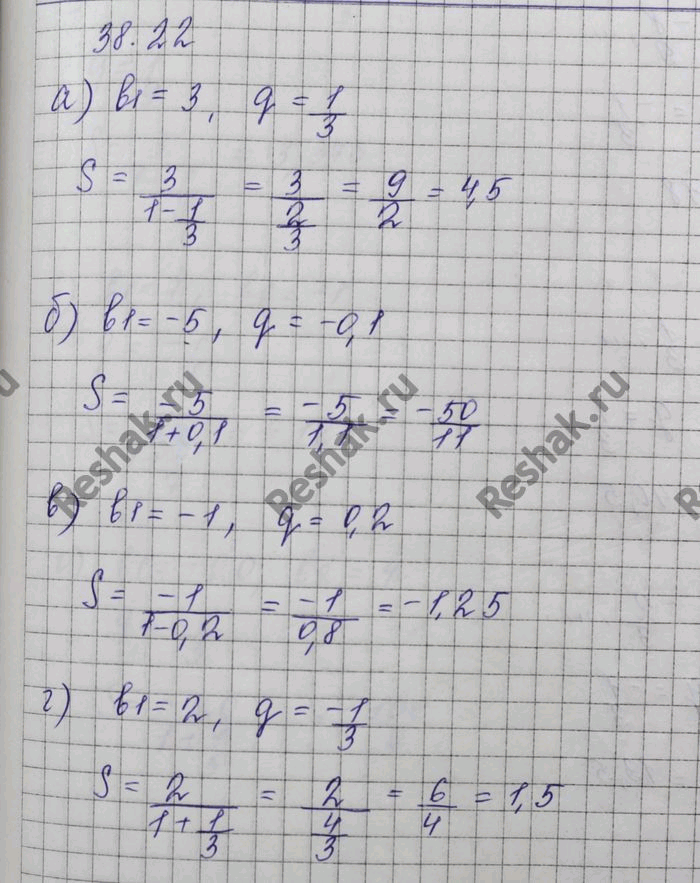 38.22
а) b1 = 3, q = 1/3
S = 3/(1 - 1/3) = 3/(2/3) = 9/2 = 4,5
б) b1 = -5, q = -0,1
S = -5/(1+0,1) = -5/1,1 = -50/11
в) b1 = -1, q = 0,2
S = -1/(1-0,2) = -1/0,8 = -1,25
г) b1 = 2, q = -1/3
S = 2/(1 + 1/3) = 2/(4/3) = 6/4 = 1,5
Reshak.ru
Reshak.ru
Reshak.ru